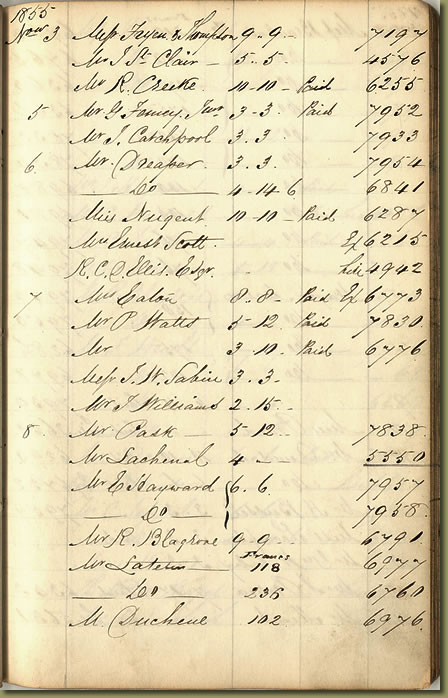 1855
Novr 3 Messrs Jeyen & Thompson 9 . 9 . - 7197
Mr J St Clair - 5 . 5 . 4576
Mr R. Creeke 10 - 10 - Paid 6255
5 Mr G Junr 3 - 3 Paid 7952
Mr J. Catchpool 3 . 3 . 7933
6 Mr Dreaper 3 . 3 . 7954
Do 4 - 14 6 6841
Miss Nugent 10 - 10 - Paid 6287
Mrs Ernest Scott. Ex 6215
R. C. Ellis. Esqr. - 4942
7 Mrs Eaton 8 . 8 - Paid Ex 6773
Mr P. Watts 5 - 12 Paid 7830
Mr 3 - 10 - Paid 6776
Messrs J. W. Sabin 3 . 3 -
Mr J Williams 2 . 15 . -
8 Mr Pask 5 12 . - 7838
Mr Lachenal 4 - - 5550
Mr E Hayward 6 . 6 . 7957
Do 7958
Mr R. Blagrove 9 - 9 - 6791
Francs
Mr 118 6977
Do 236 6760
M. Duchene 102 6976